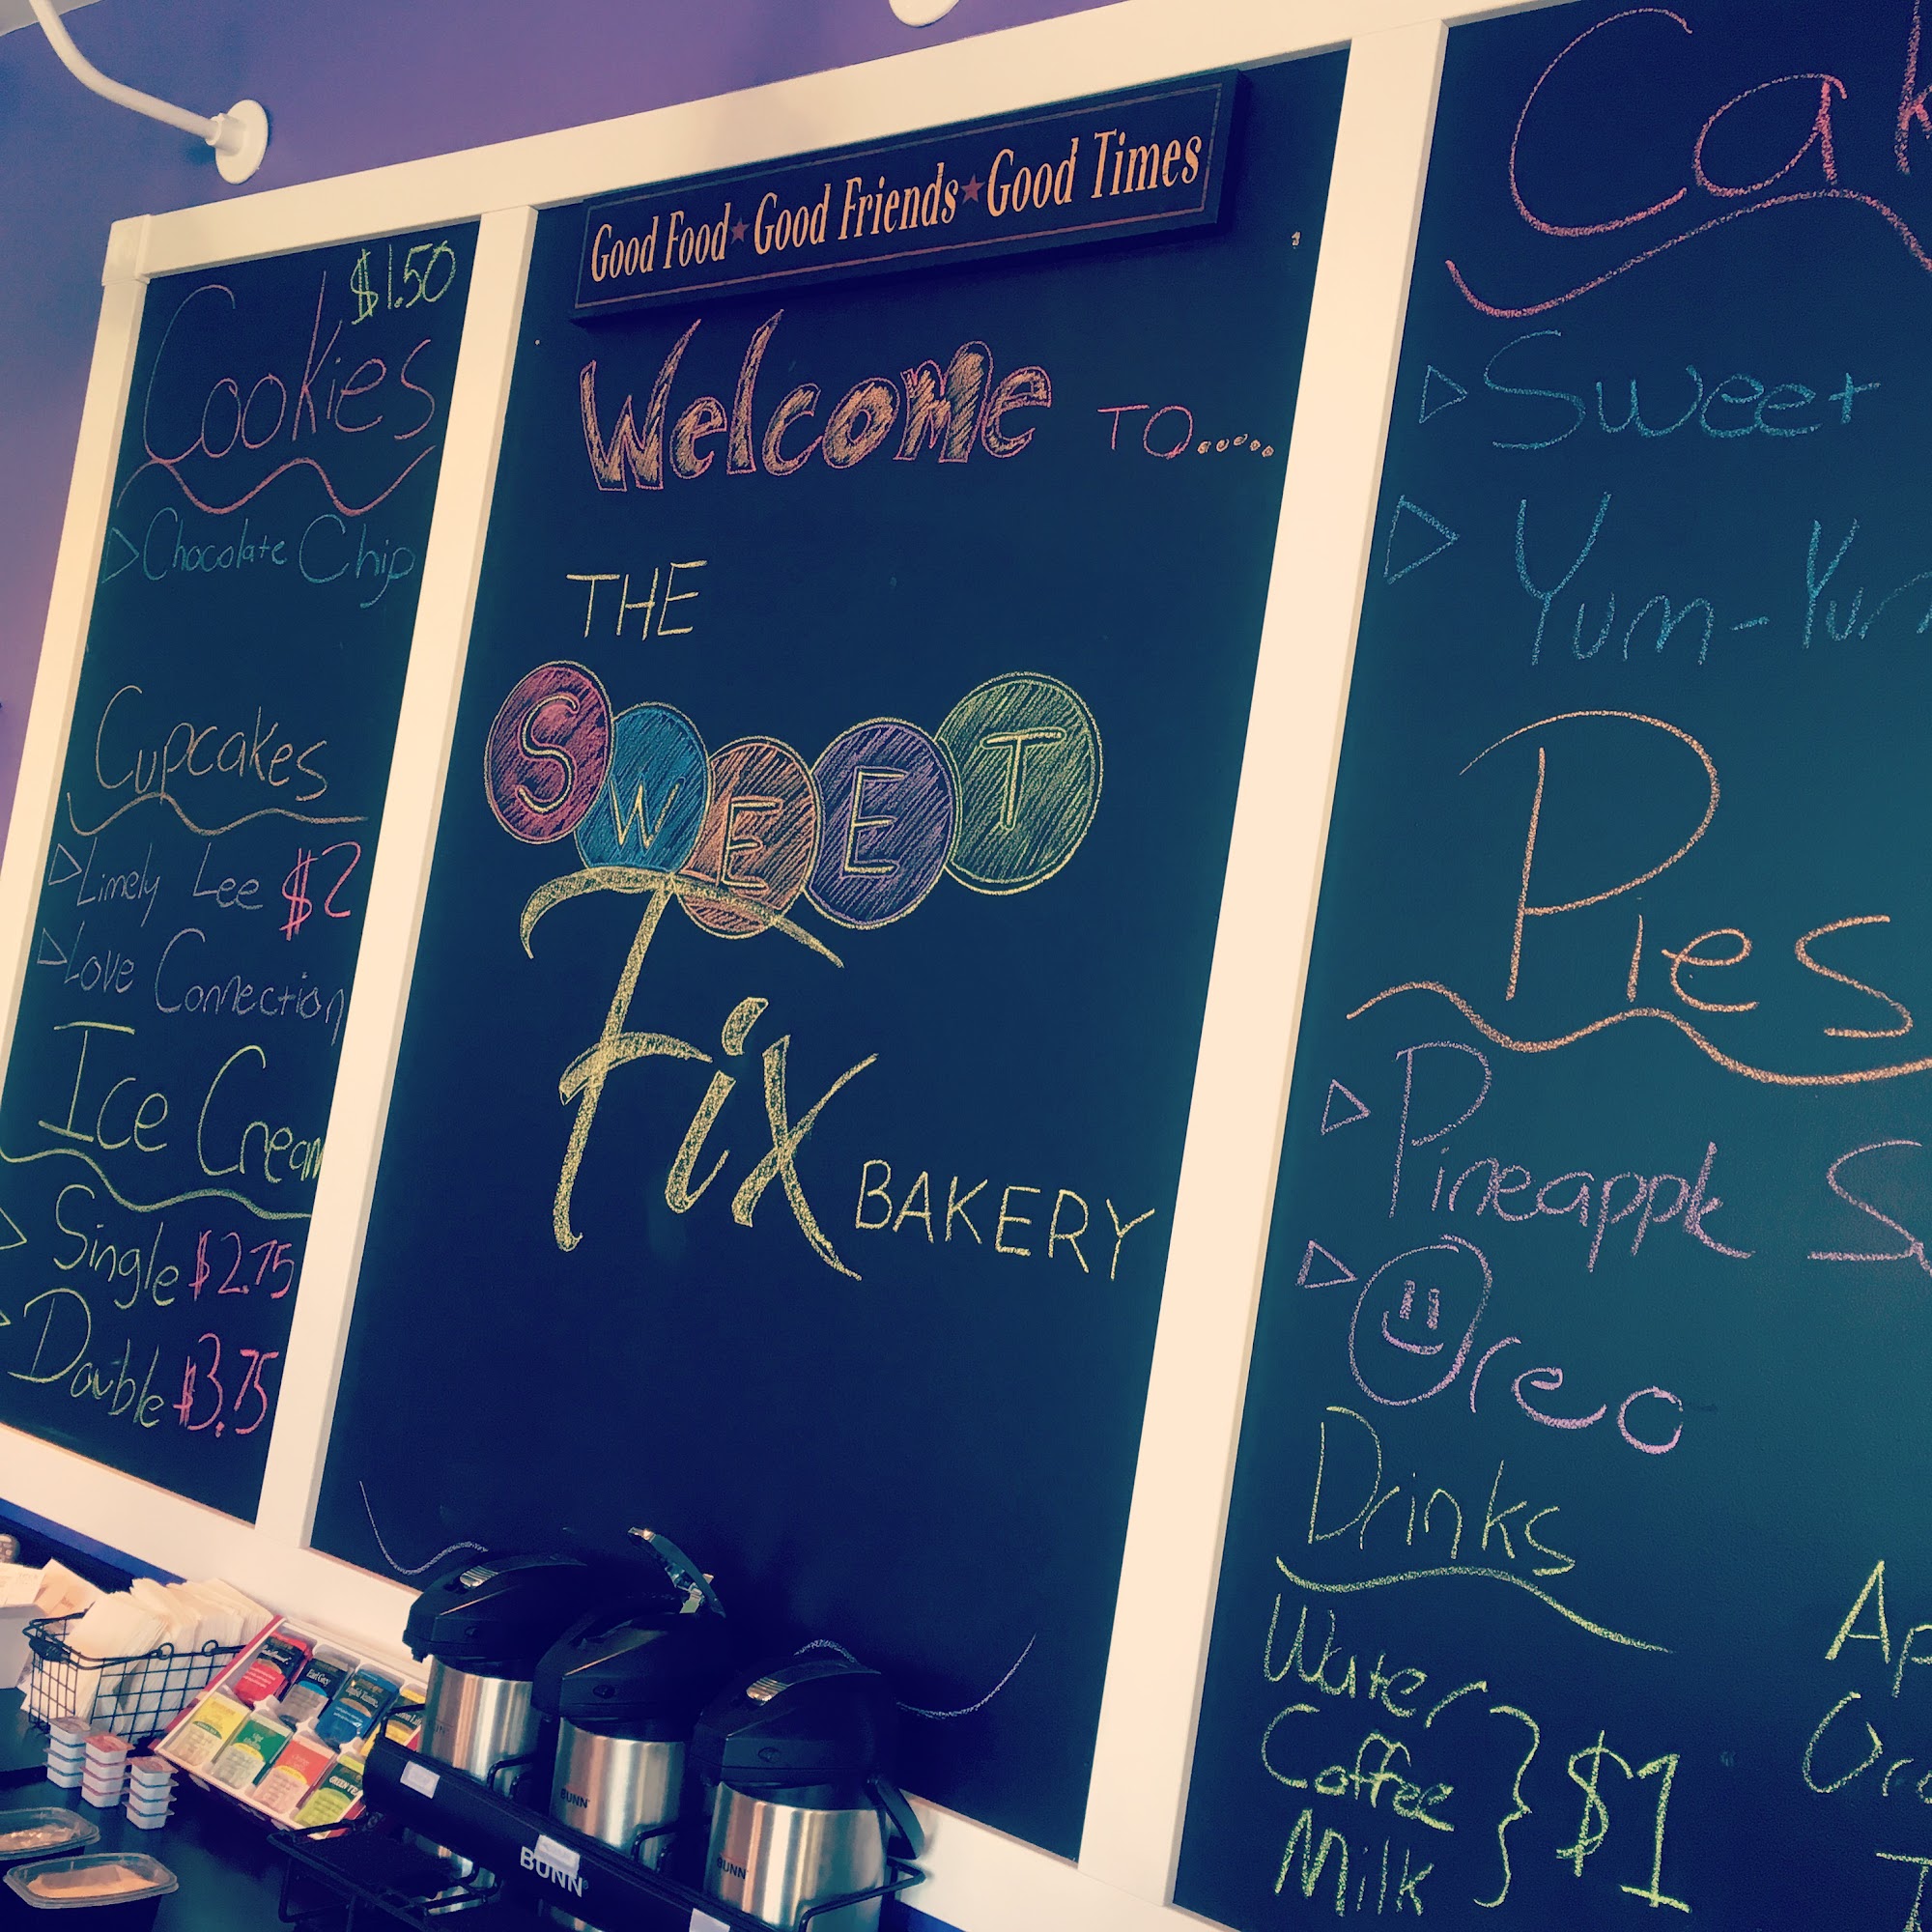 $1.50
Cookies
Chocolate Chip
Cupcakes
Limely Lee $2
Love Connection
Ice Cream
Single $2.75
Double $3.75
Good Food★Good Friends★Good Times
Welcome TO.....
THE
SWEET
Fix BAKERY
Sweet
Yum-Yum
Pies
Pineapple
Oreo
Drinks
Water
Coffee
Milk
$1
Earl Grey
GREEN TEA
BUNN
BUNN
BUNN